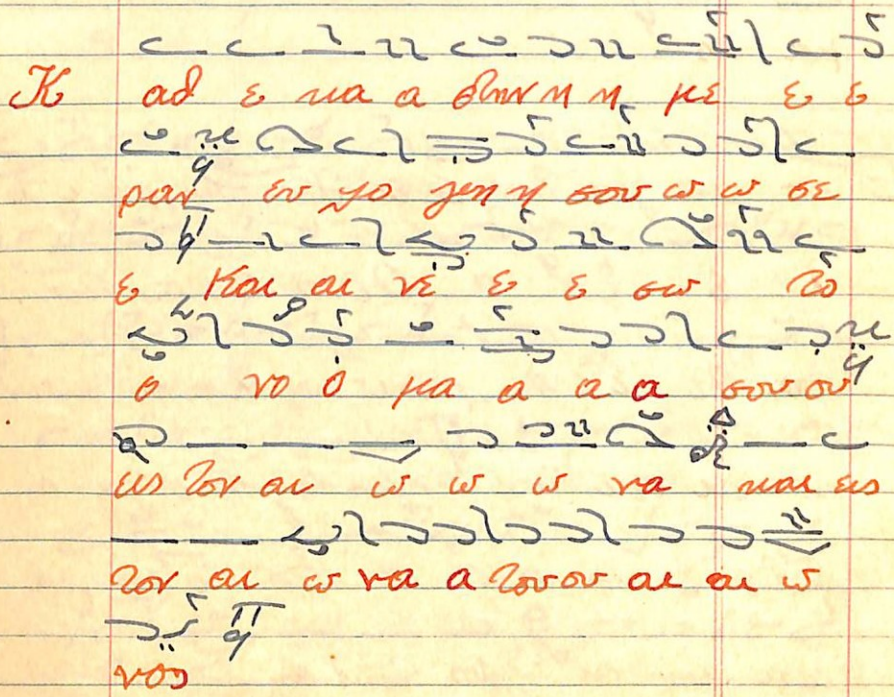 Κ αθ ε κα α στην η η με ε ε
ραν ευ λο γη η σου ω ω σε
ε Και αι νέ ε ε σω το
ο νο ό μα α α α σου ου
εις τον αι ω ω ω να και εις
τον αι ω να α τουου αι αι ω
νος